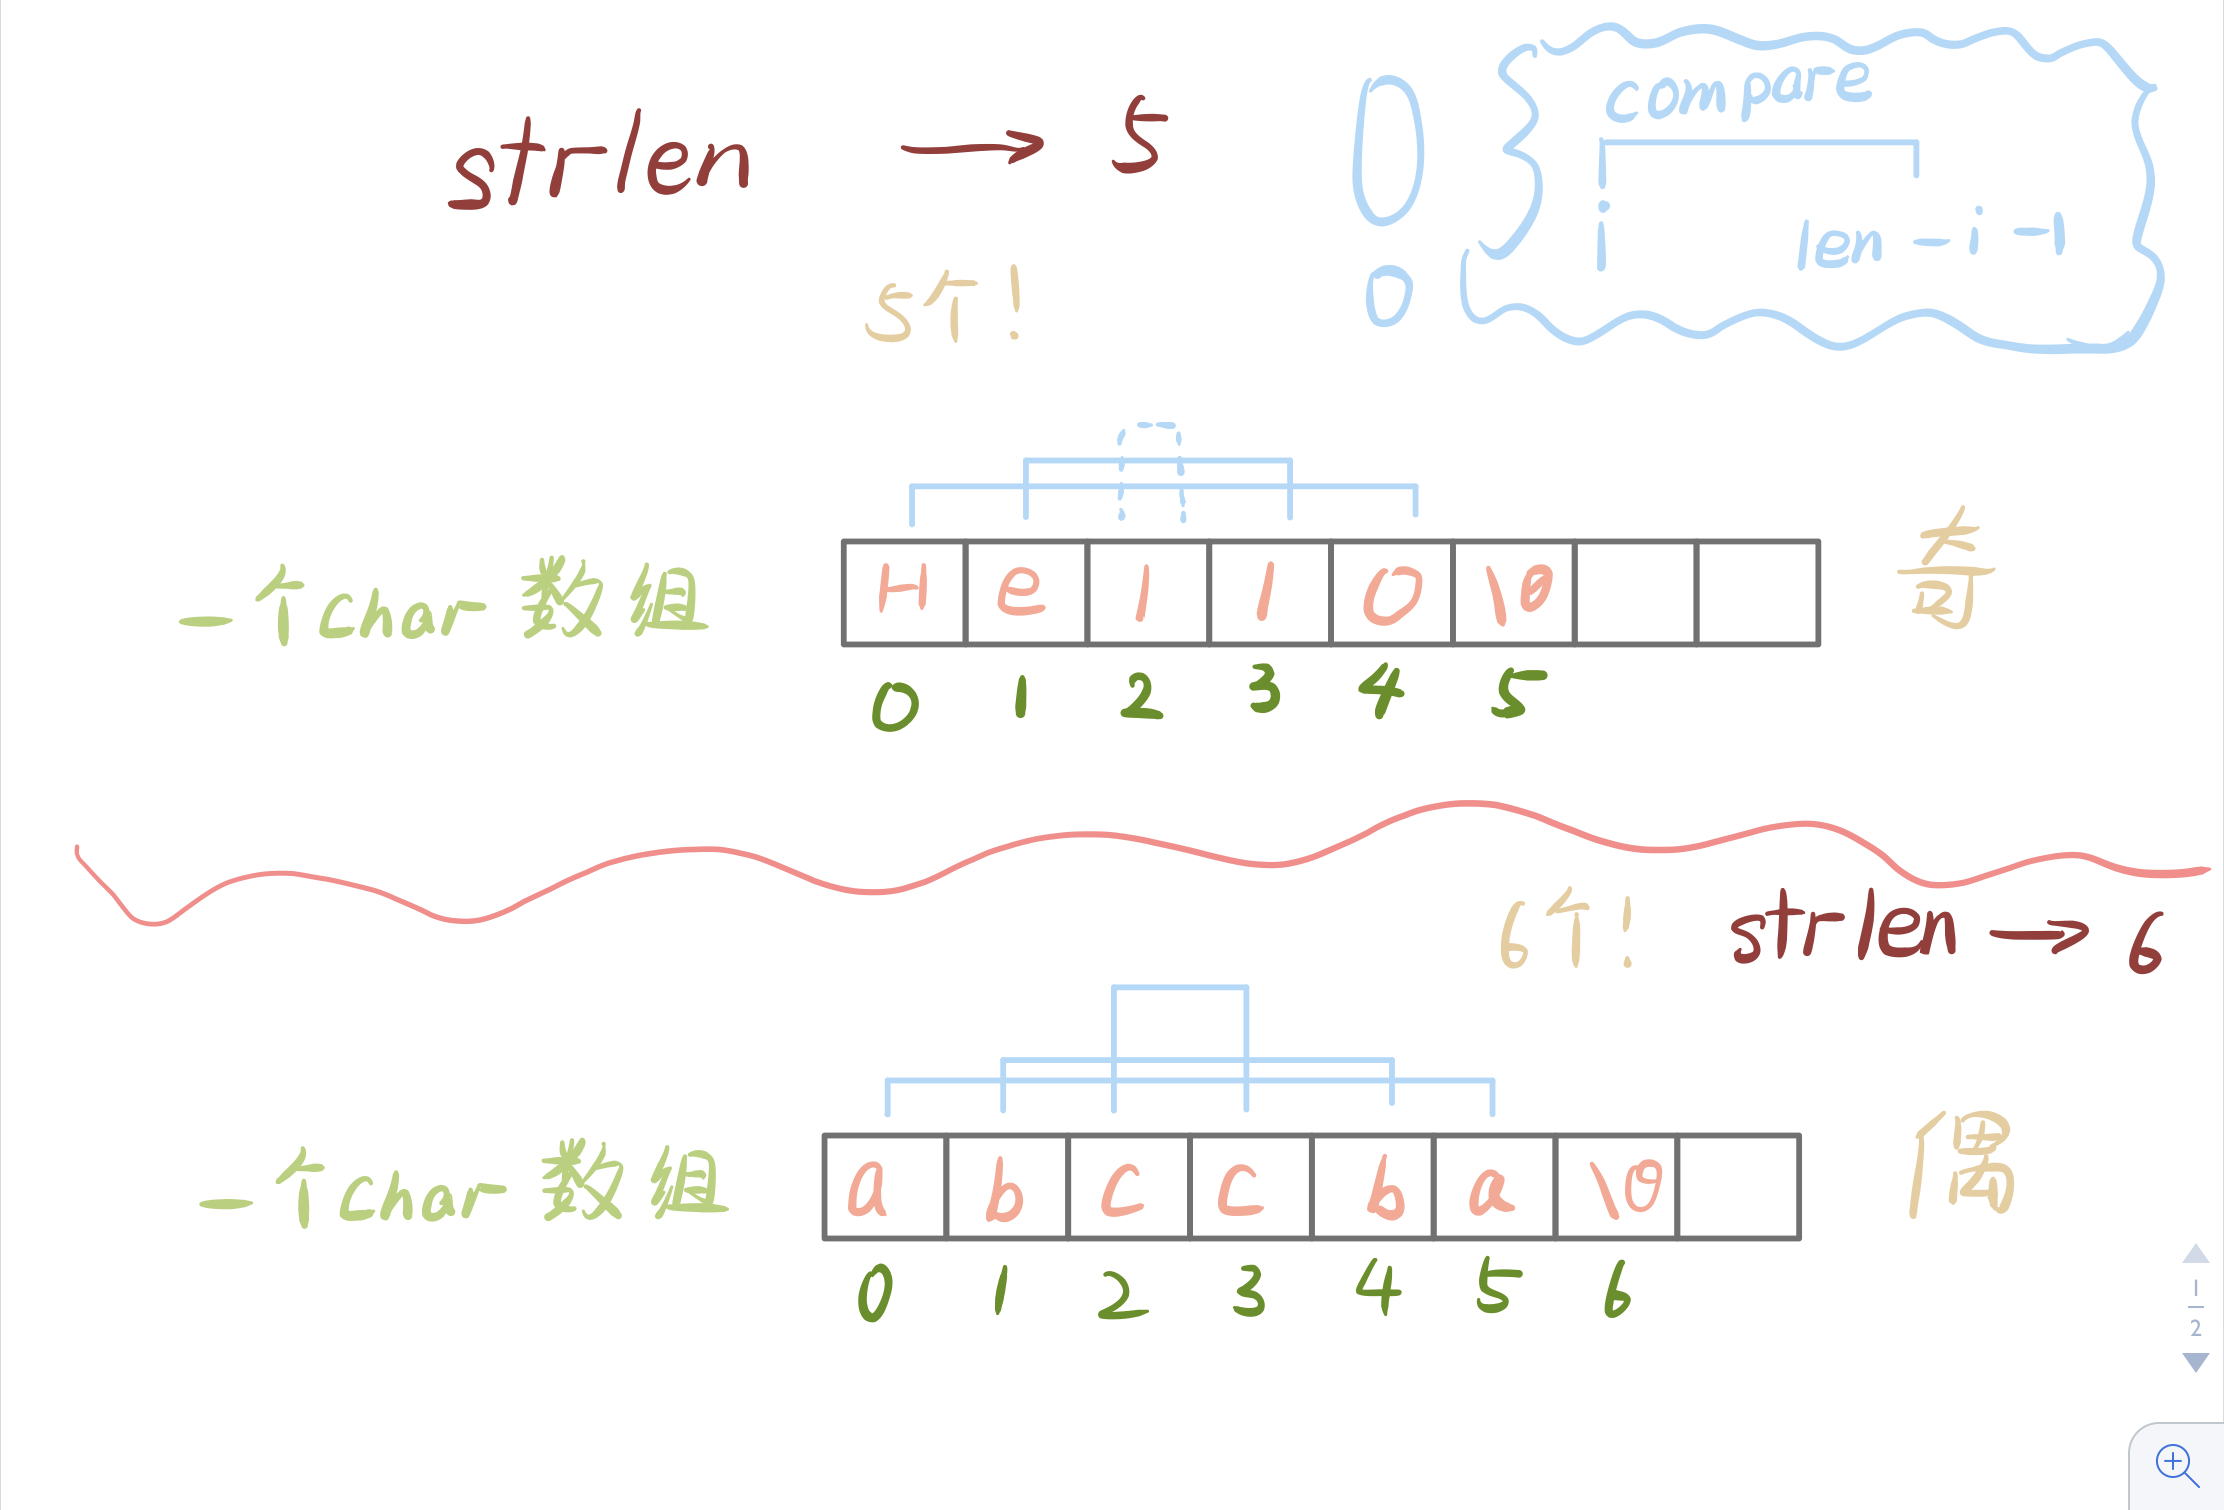 strlen → 5
compare
i len - i - 1
5个!
一个char数组
H e l l o \0
奇
0 1 2 3 4 5
6个! strlen → 6
一个char数组
a b c c b a \0
偶
0 1 2 3 4 5 6
1
2